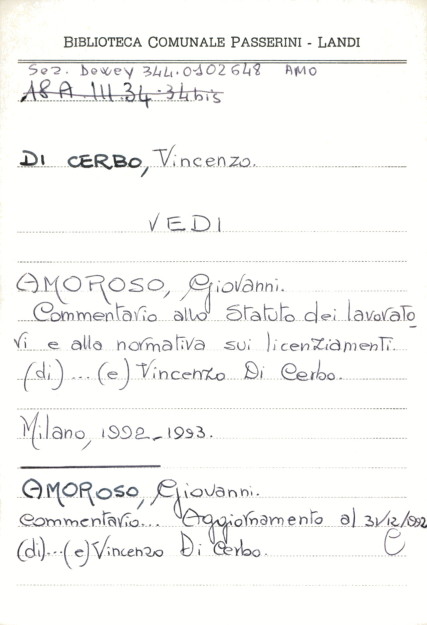 BIBLIOTECA COMUNALE PASSERINI - LANDI
Sez. Dewey 344.0102648 AMO
18A.III.34-34bis
DI CERBO, Vincenzo.
VEDI
AMOROSO, Giovanni.
Commentario allo Statuto dei lavorato_
ri e alla normativa sui licenziamenti.
(di)...(e) Vincenzo Di Cerbo.
Milano, 1992-1993.
AMOROSO, Giovanni.
Commentario... Aggiornamento al 31/12/1992
(di)...(e) Vincenzo Di Cerbo. C